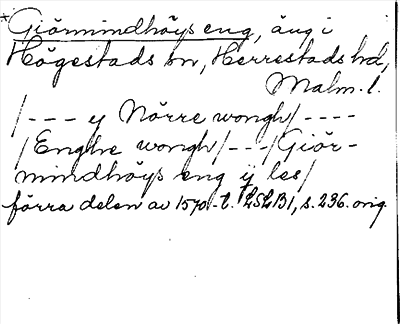 *Giörmindhöys eng, äng i
Högestads sn, Herrestads hd,
Malm. l.
/--- y Nörre wongh/----
/Enghe wongh/---/Giör-
mindhöys eng ij les/
förra delen av 1570-t. LSLB1, s. 236. orig.